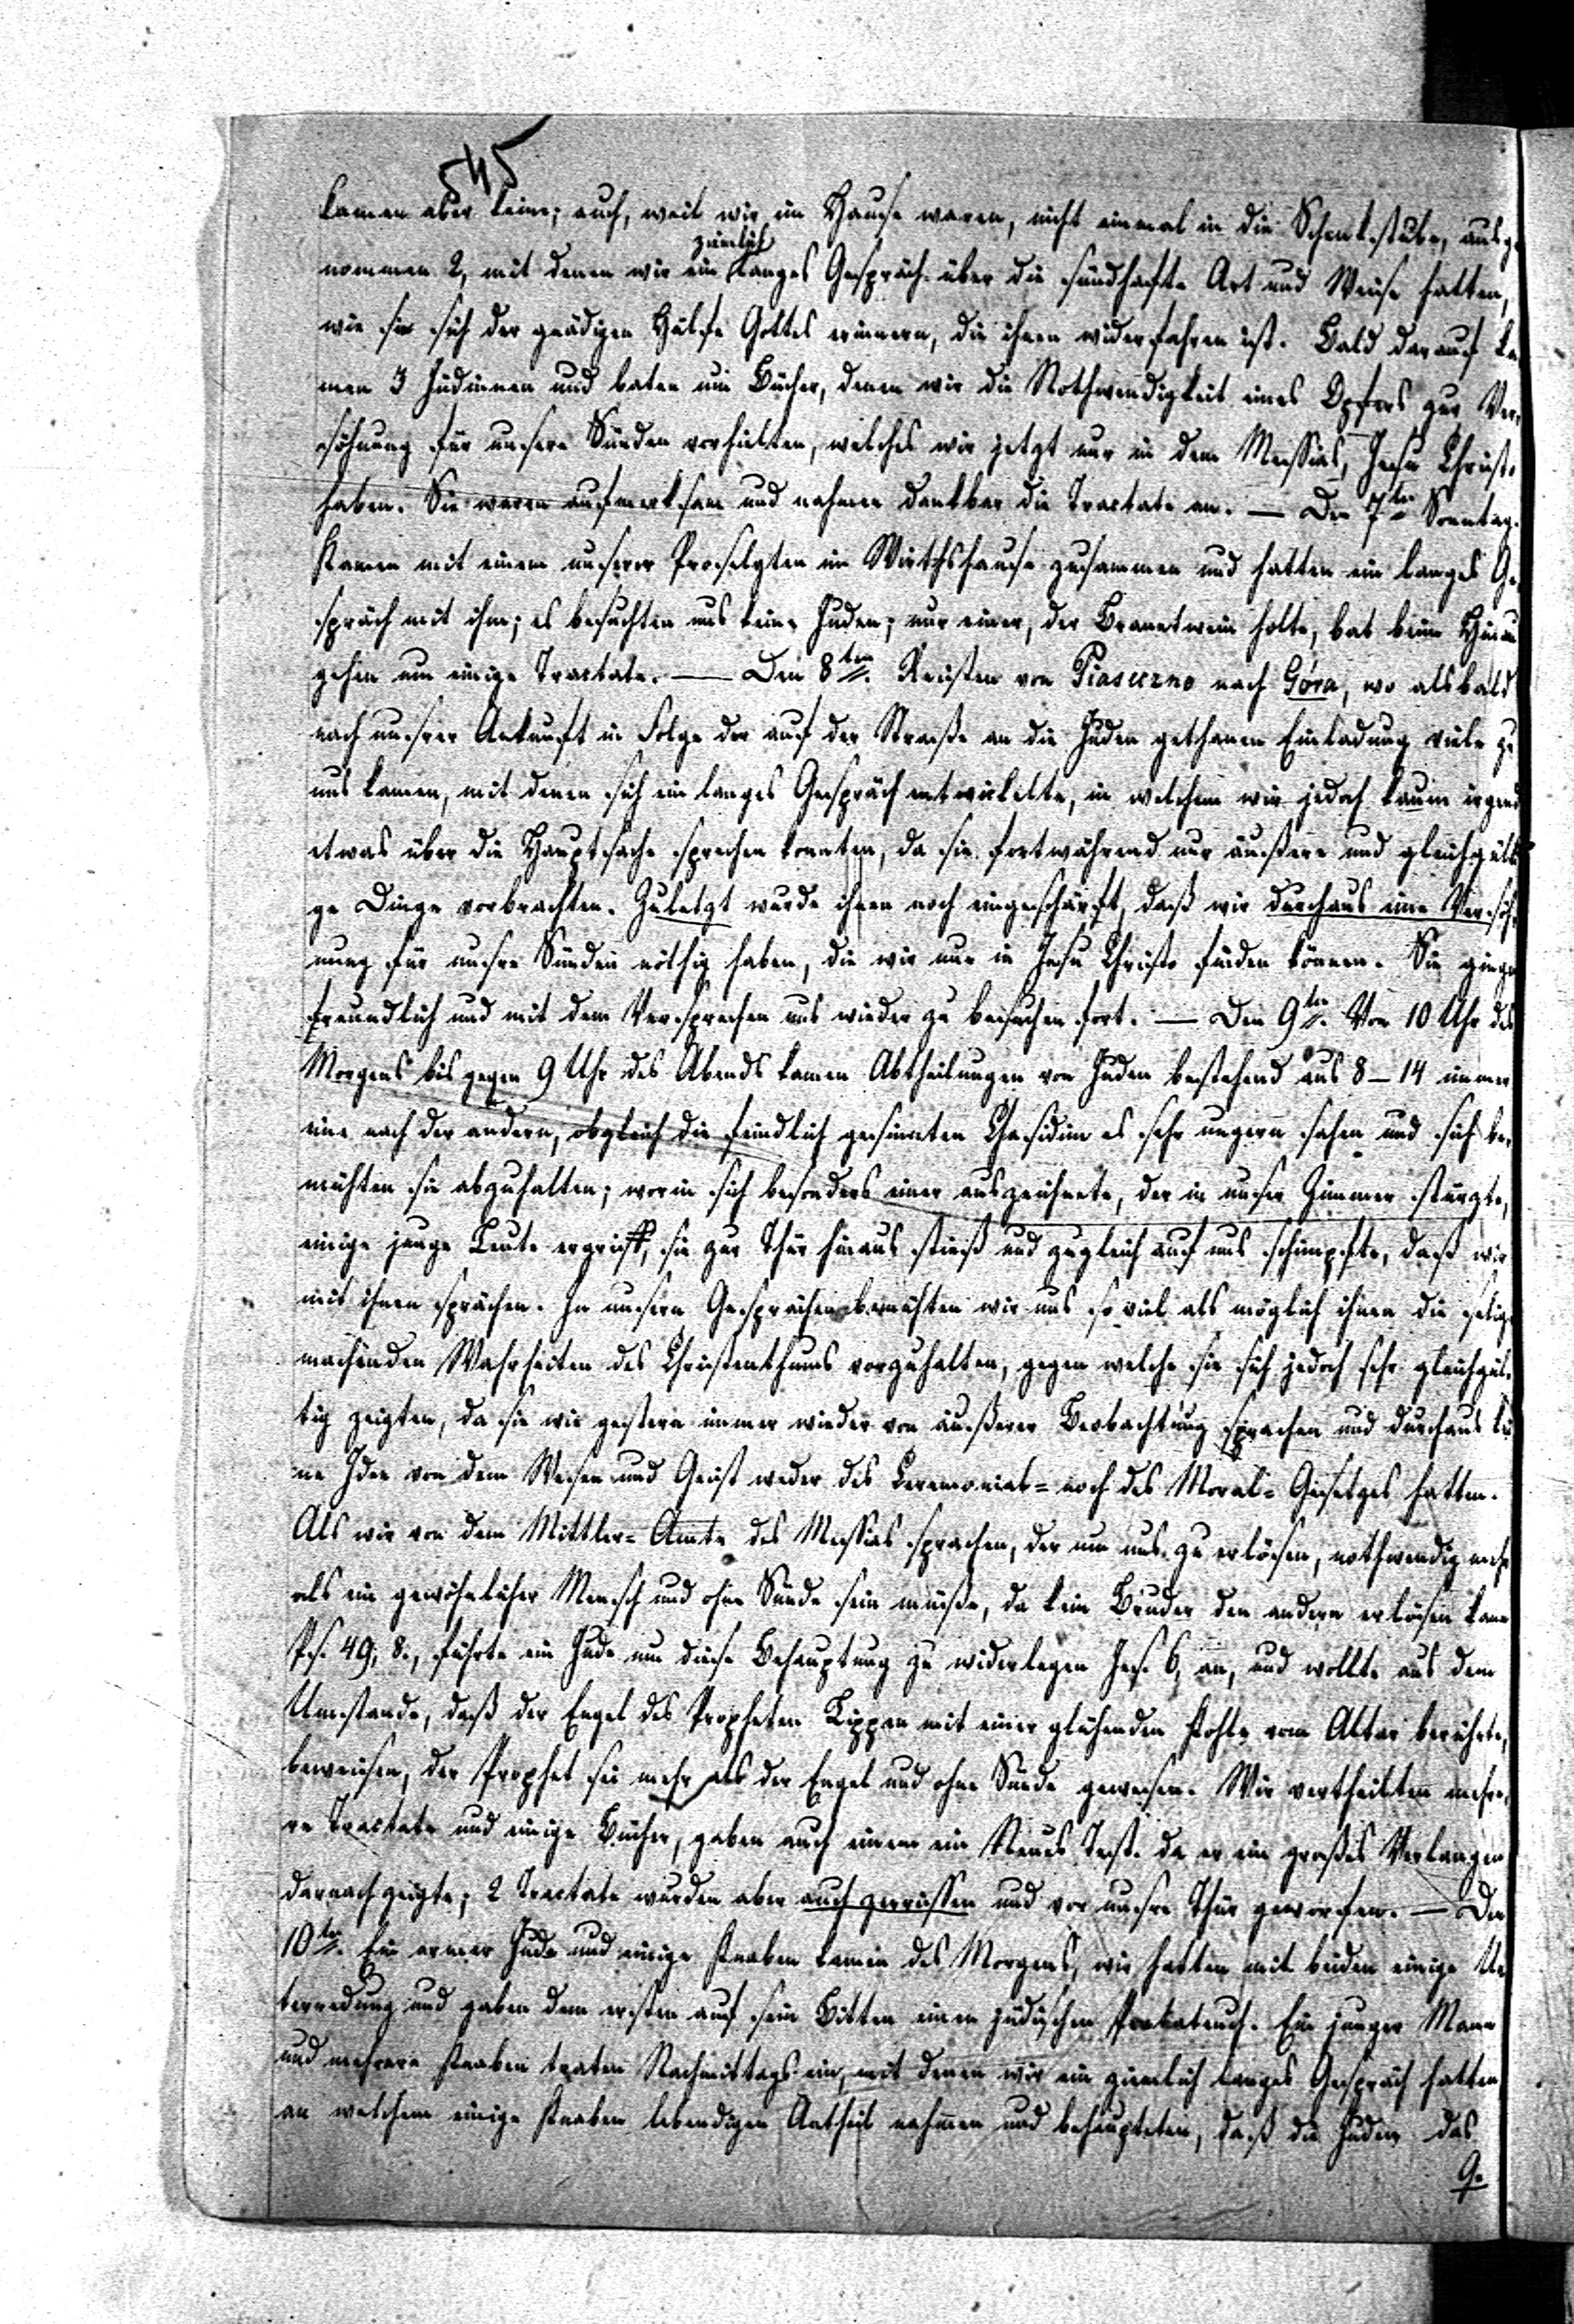 545
kamen aber keine; auch, weil wir im Hause waren, nicht einmal in die Schenkstube, ausge
ziemlich
nommen 2, mit denen wir ein langes Gespräch über die sündhafte Art und Weise hatten,
wie sie sich der gnädigen Hülfe Gottes erinnern, die ihnen widerfahren ist. Bald darauf ka
men 3 Jüdinnen und baten um Bücher, denen wir die Nothwendigkeit eines Opfers zur Ver
söhnung für unsere Sünden vorhielten, welches wir jetzt nur in dem Messias, Jesu Christo
haben. Sie waren aufmerksam und nahmen dankbar die Tractate an. — Den 7ten Sonntag.
Kamen mit einem unserer Proselyten im Wirthshause zusammen und hatten ein langes Ge
spräch mit ihm; es besuchten uns keine Juden; nur einer, der Branntwein holte, bat beim Hinaus
gehen um einige Tractate. — Den 8ten. Reisten von Piaseczno nach Góra, wo alsbald
nach unsrer Ankunft in Folge der auf der Straße an die Juden gethanen Einladung viele zu
uns kamen, mit denen sich ein langes Gespräch entwickelte, in welchem wir jedoch kaum irgend
etwas über die Hauptsache sprechen konnten, da sie fortwährend nur äußere und gleichgülti
ge Dinge vorbrachten. Zuletzt wurde ihnen noch eingeschärft, daß wir durchaus eine Versöh
nung für unsre Sünden nöthig haben, die wir nur in Jesu Christo finden können. Sie gingen
freundlich und mit dem Versprechen uns wieder zu besuchen fort. — Den 9ten. Von 10 Uhr des
Morgens bis gegen 9 Uhr des Abends kamen Abtheilungen von Juden bestehend aus 8–14 immer
eine nach der andern, obgleich die feindlich gesinnten Chasidim es sehr ungern sahen und sich be
mühten sie abzuhalten; worin sich besonders einer auszeichnete, der in unser Zimmer stürzte,
einige junge Leute ergriff, sie zur Thür hinaus stieß und zugleich auf uns schimpfte, daß wir
mit ihnen sprächen. In unsern Gesprächen bemühten wir uns so viel als möglich ihnen die selig
machenden Wahrheiten des Christenthums vorzuhalten, gegen welche sie sich jedoch sehr gleichgül
tig zeigten, da sie wie gestern immer wieder von äußerer Beobachtung sprachen und durchaus kei
ne Idee von dem Wesen und Geist weder des Ceremonial= noch des Moral= Gesetzes hatten.
Als wir von dem Mittler= Amte des Messias sprachen, der um uns zu erlösen, nothwendig mehr
als ein gewöhnlicher Mensch und ohne Sünde sein müße, da kein Bruder den andern erlösen kann
Ps. 49, 8., führte ein Jude um diese Behauptung zu widerlegen Jes. 6, an, und wollte aus dem
Umstande, daß der Engel des Propheten Lippen mit einer glühenden Kohle vom Altar berührte,
beweisen, der Prophet sei mehr als der Engel und ohne Sünde gewesen. Wir vertheilten mehre
re Tractate und einige Bücher, gaben auch einem ein Neues Test. da er ein großes Verlangen
darnach zeigte; 2 Tractate wurden aber auch zerrissen und vor unsre Thür geworfen. — Den
10ten. Ein armer Jude und einige Knaben kamen des Morgens, wir hatten mit beiden einige Un
terredung und gaben dem ersten auf sein Bitten einen jüdischen Pentateuch. Ein junger Mann
und mehrere Knaben traten Nachmittags ein, mit denen wir ein ziemlich langes Gespräch hatten
an welchem einige Knaben lebendigen Antheil nahmen und behaupteten, daß die Juden das
Ge